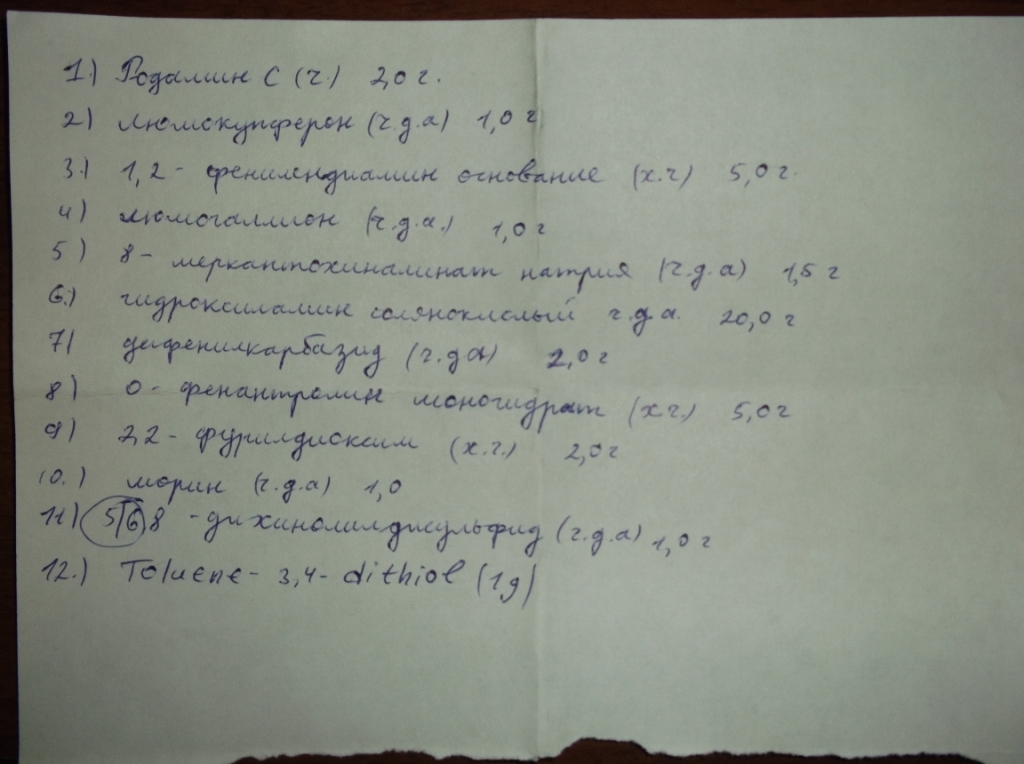 1.) Родамин С (ч.) 2,0 г.
2) люмокупферон (ч.д.а) 1,0 г
3.) 1,2 - фенилендиамин основание (х.ч) 5,0 г.
4) люмогаллион (ч.д.а.) 1,0 г
5) 8 - меркаптохиналинат натрия (ч.д.а) 1,5 г
6.) гидроксиламин солянокислый ч.д.а. 20,0 г
7) дифенилкарбазид (ч.д.а) 2,0 г
8) О - фенантролин моногидрат (х.ч.) 5,0 г
9) 2,2 - фурилдиоксим (х.ч.) 2,0 г
10.) морин (ч.д.а) 1,0
11) 8 - дихинолилдисульфид (ч.д.а) 1,0 г
12.) Toluene - 3,4 - dithiol (1g)